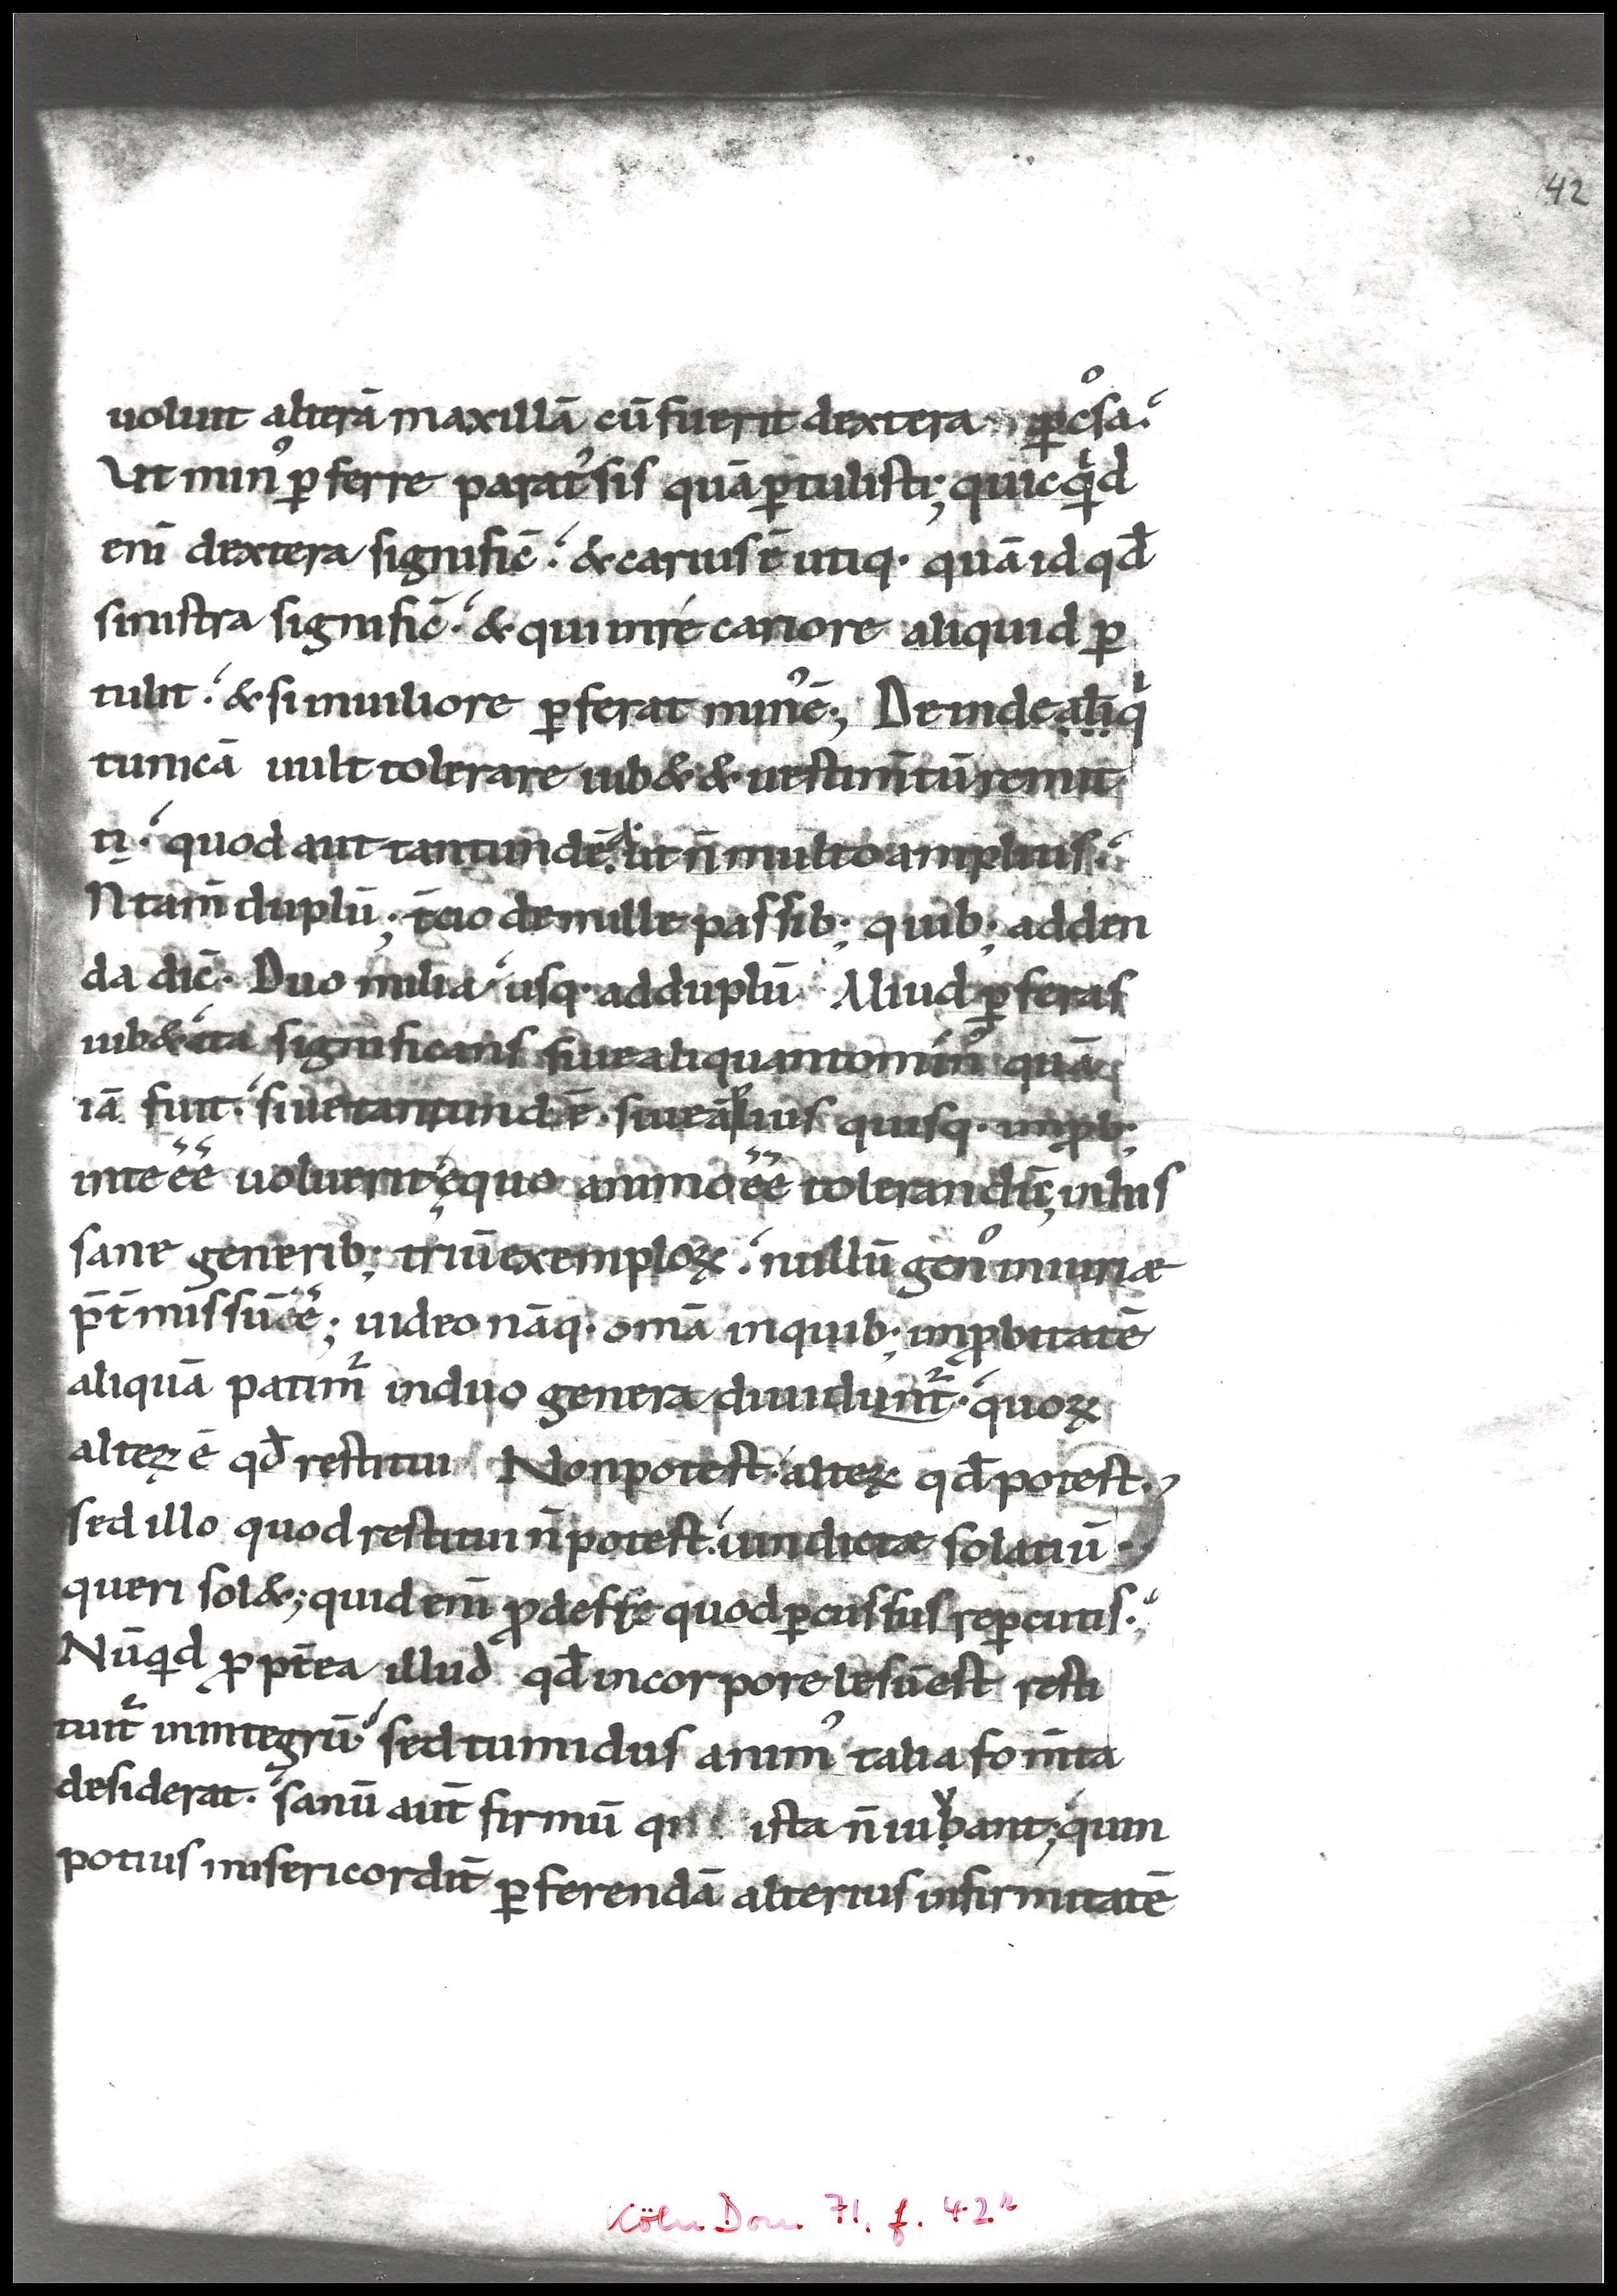 42
uoluit alterā maxillā cū fuerit dextera ꝑcͦsa.
Vt min᾿ ꝑferre parat᾿ sis quā ꝑtulisti; quicqͥd
eni̅ dextera signific̅. & carius ē utiq. quā id qd̅
sinistra signific̅. & qui in re cariore aliquid ꝑ
tulit. & si in uiliore ꝑferat min᾿ ē; Deinde aliqͥ
tunicā uult tolerare iub& & uestim̅tū remit
ti. quod aut tantundē ē. aut n̅ multo amplius.
N tam̅ duplū; t̅cio de mille passib; quib; adden
da dic̅. Duo milia usq. ad duplū Aliud ꝑferas
iub& ita significans siue aliquanto min᾿ quā
iā fuit. siue tantundē. siue āplius quisq. inꝓb;
in te eē uoluerit ęquo animo eē tolerandū; in his
sane generib; triū exemploꝝ. nullū gen᾿ iniuriæ
p̅t̅missū eē; uideo nāq. om̅a in quib; inꝓbitatē
aliquā patim᾿ in duo genera diuidunt̅. quoꝝ
alteꝝ ē qd̅ restitui Non potest. alteꝝ qd̅ potest.
sed illo quod restitui n̅ potest. uindictæ solatiū
queri sol&; quid eni̅ ꝓdesse quod ꝑcussus reꝑcutis.
Nūqͥd ꝓpt̅ea illud qd̅ in corpore lesū est resti
tuit̅ in integrū. sed tumidus anim᾿ talia fom̅ta
desiderat. sanū aut̅ firmū q ista n̅ iuvant; quin
potius misericordit̅ ꝑferendā alterius infirmitatē
Köln Dom 71. f. 42ʳ